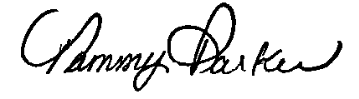 Tammy Parker